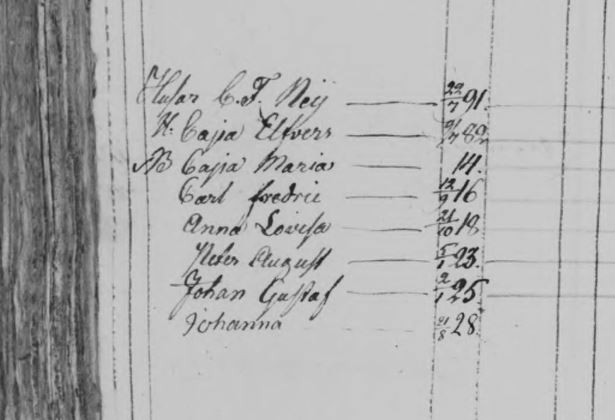 Husar C. F. Neij — 22/7 91.
H. Cajsa Elfvers — 21/7 89
NB Cajsa Maria — 14.
Carl fredric — 12/9 16
Anna Lovisa — 21/10 18
Peter August — 5/1 23.
Johan Gustaf — 2/1 25.
Johanna 21/8 28